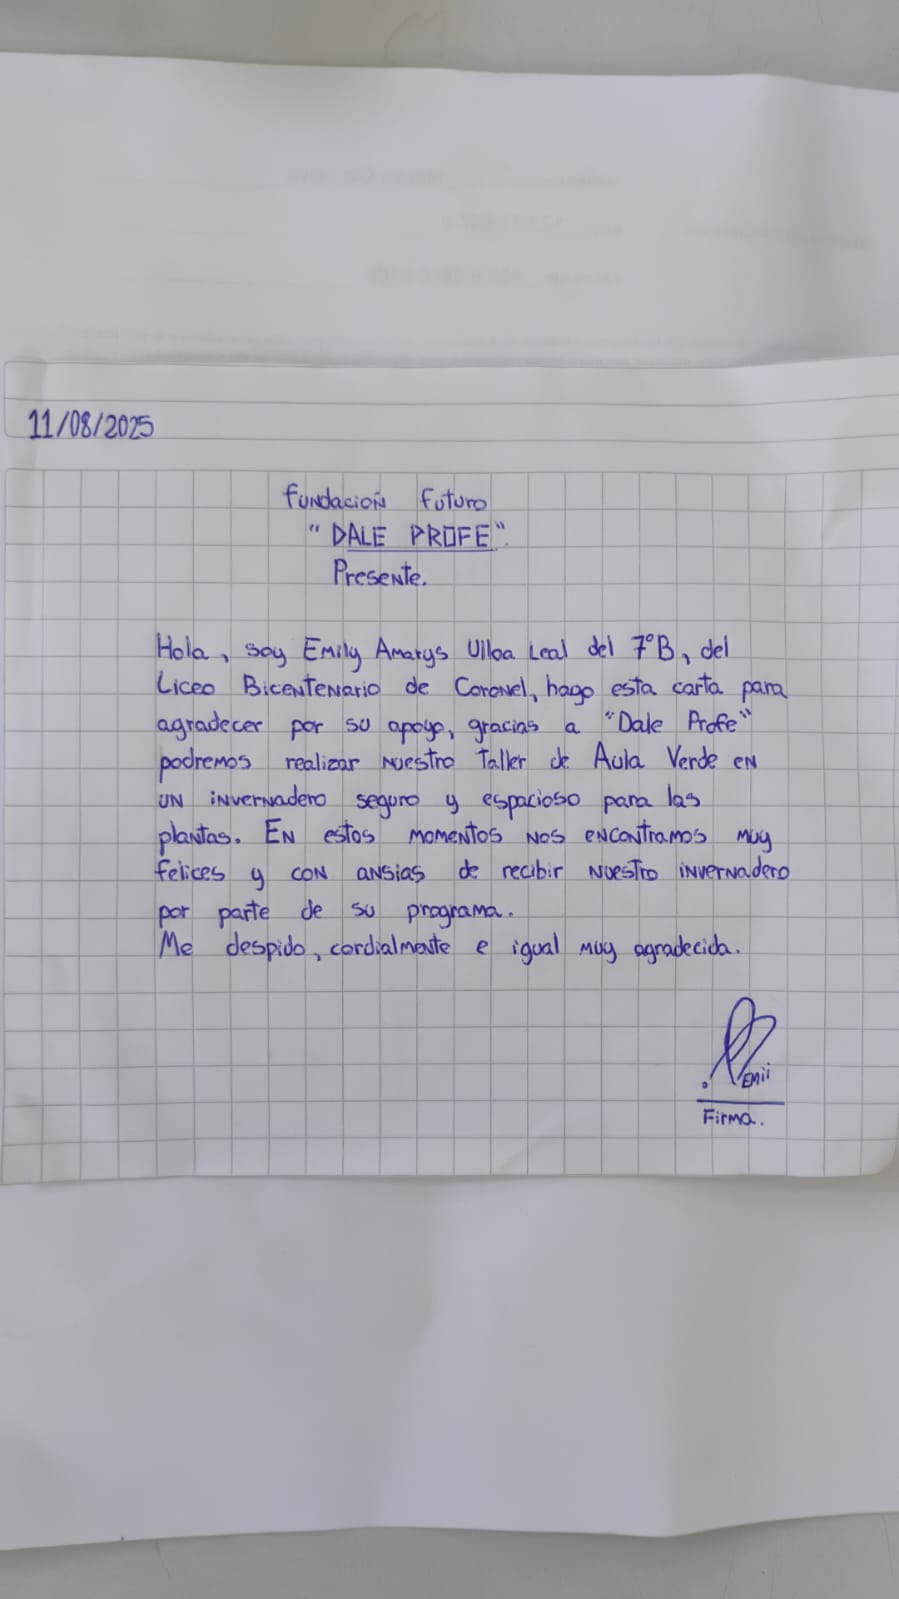 11/08/2025
Fundación Futuro
"DALE PROFE".
Presente.
Hola, soy Emily Amarys Ulloa Leal del 7°B, del
Liceo Bicentenario de Coronel, hago esta carta para
agradecer por su apoyo, gracias a "Dale Profe"
podremos realizar nuestro taller de Aula Verde en
un invernadero seguro y espacioso para las
plantas. En estos momentos nos encontramos muy
felices y con ansias de recibir nuestro invernadero
por parte de su programa.
Me despido, cordialmente e igual muy agradecida.
Emii
Firma.